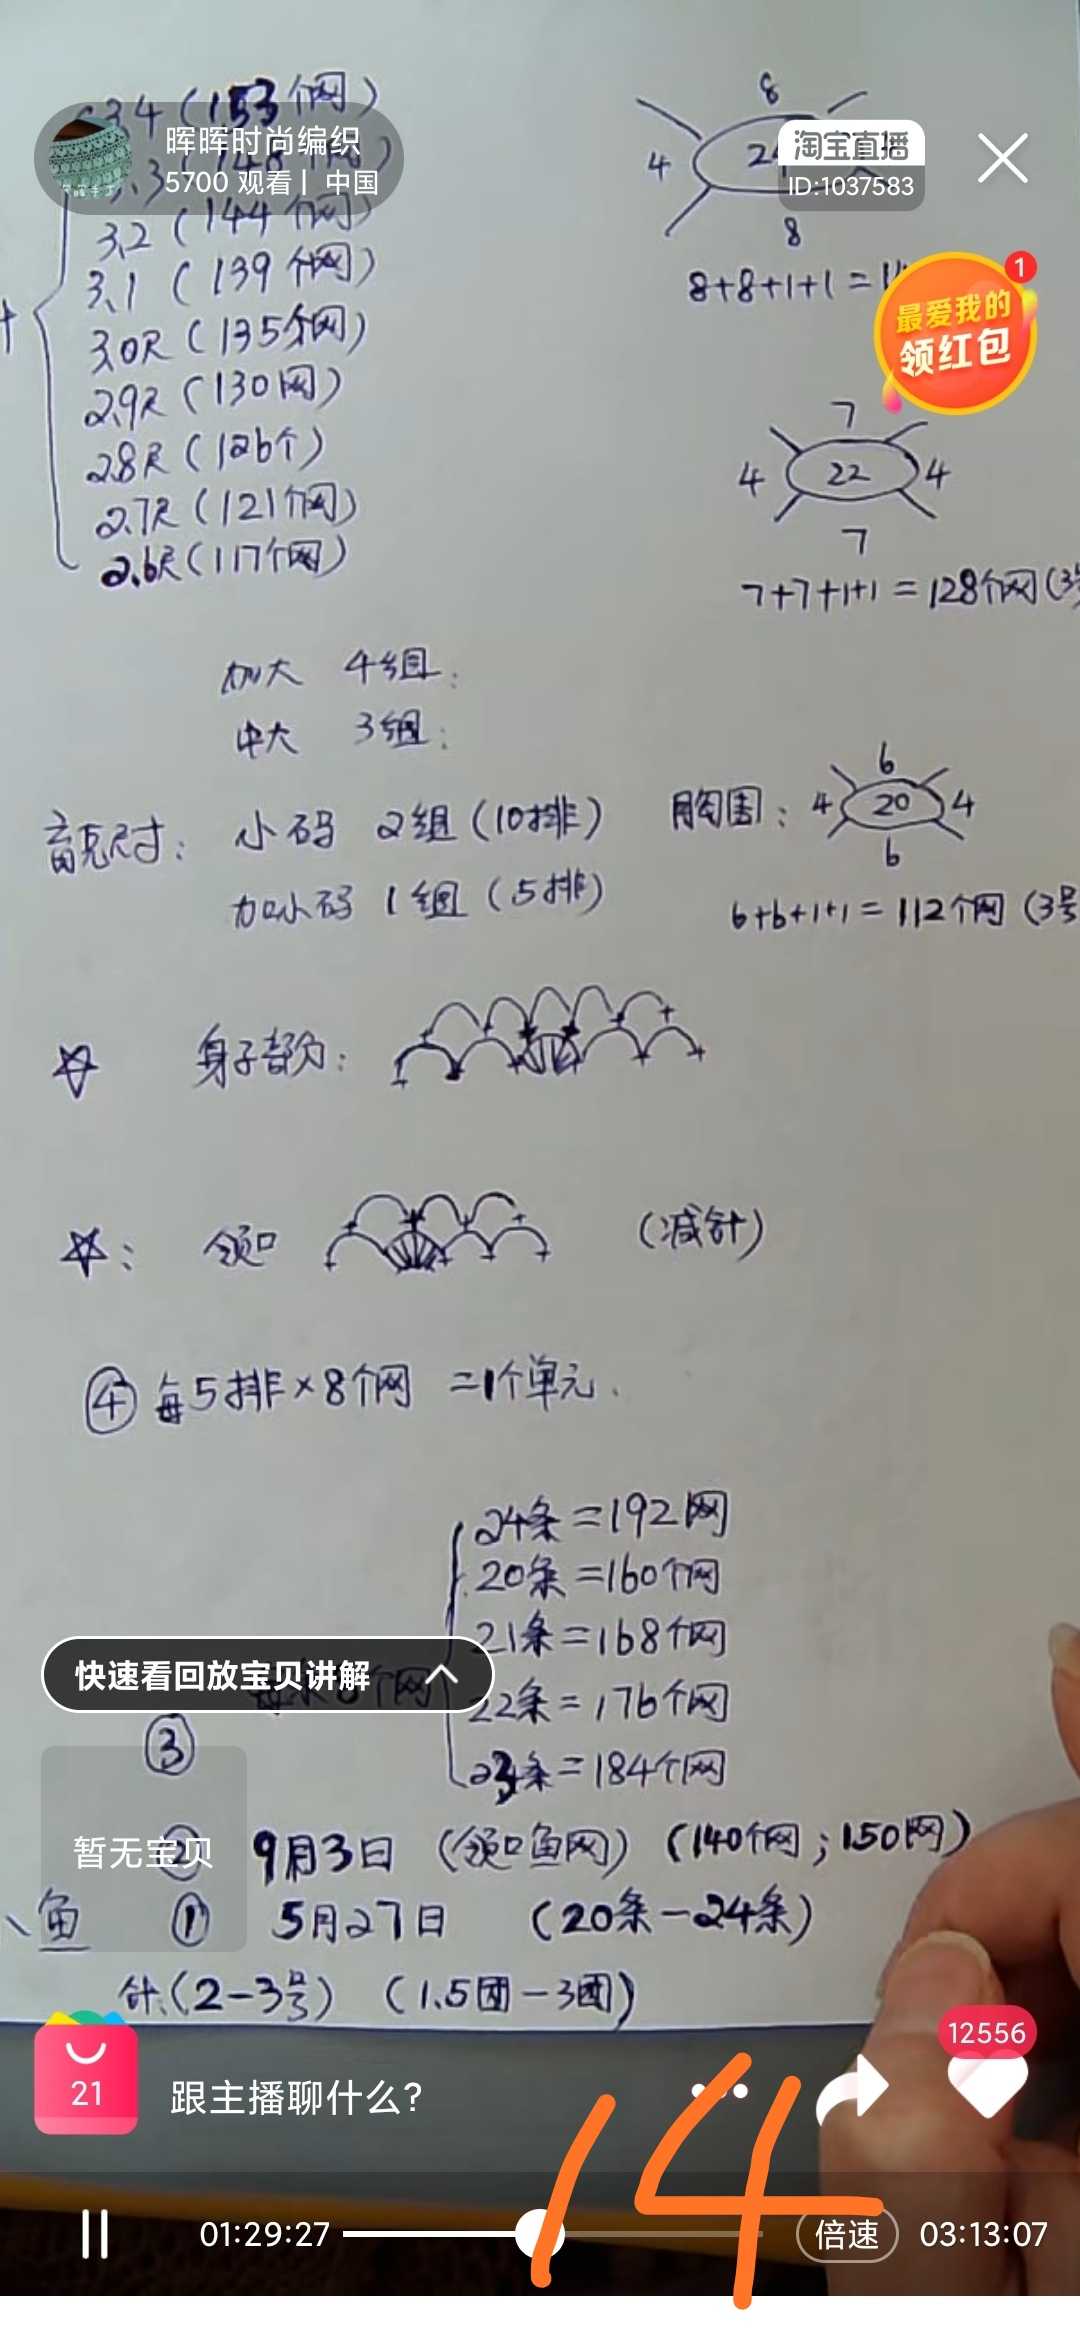 3.4 (153个网)
晖晖时尚编织
5700 观看 | 中国
3.2 (144个网)
3.1 (139个网)
3.0尺 (135个网)
2.9尺 (130网)
2.8尺 (126个)
2.7尺 (121个网)
2.6尺 (117个网)
8
4
8
8+8+1+1=
淘宝直播
ID:1037583
1
最爱我的
领红包
7
4 22 4
7
7+7+1+1=128个网(3号
加大 4组:
中大 3组:
育克尺寸: 小码 2组 (10排)
加小码 1组 (5排)
胸围: 6
4 20 4
6
6+6+1+1=112个网 (3号
☆ 身子部分:
☆: 领口 (减针)
④ 每5排×8个网 =1个单元.
24条=192网
20条=160个网
21条=168个网
22条=176个网
23条=184个网
快速看回放宝贝讲解
③
暂无宝贝
② 9月3日 (领口鱼网) (140个网; 150网)
、鱼 ① 5月27日 (20条-24条)
针、(2-3号) (1.5团-3团)
21
跟主播聊什么?
12556
14
01:29:27
倍速
03:13:07